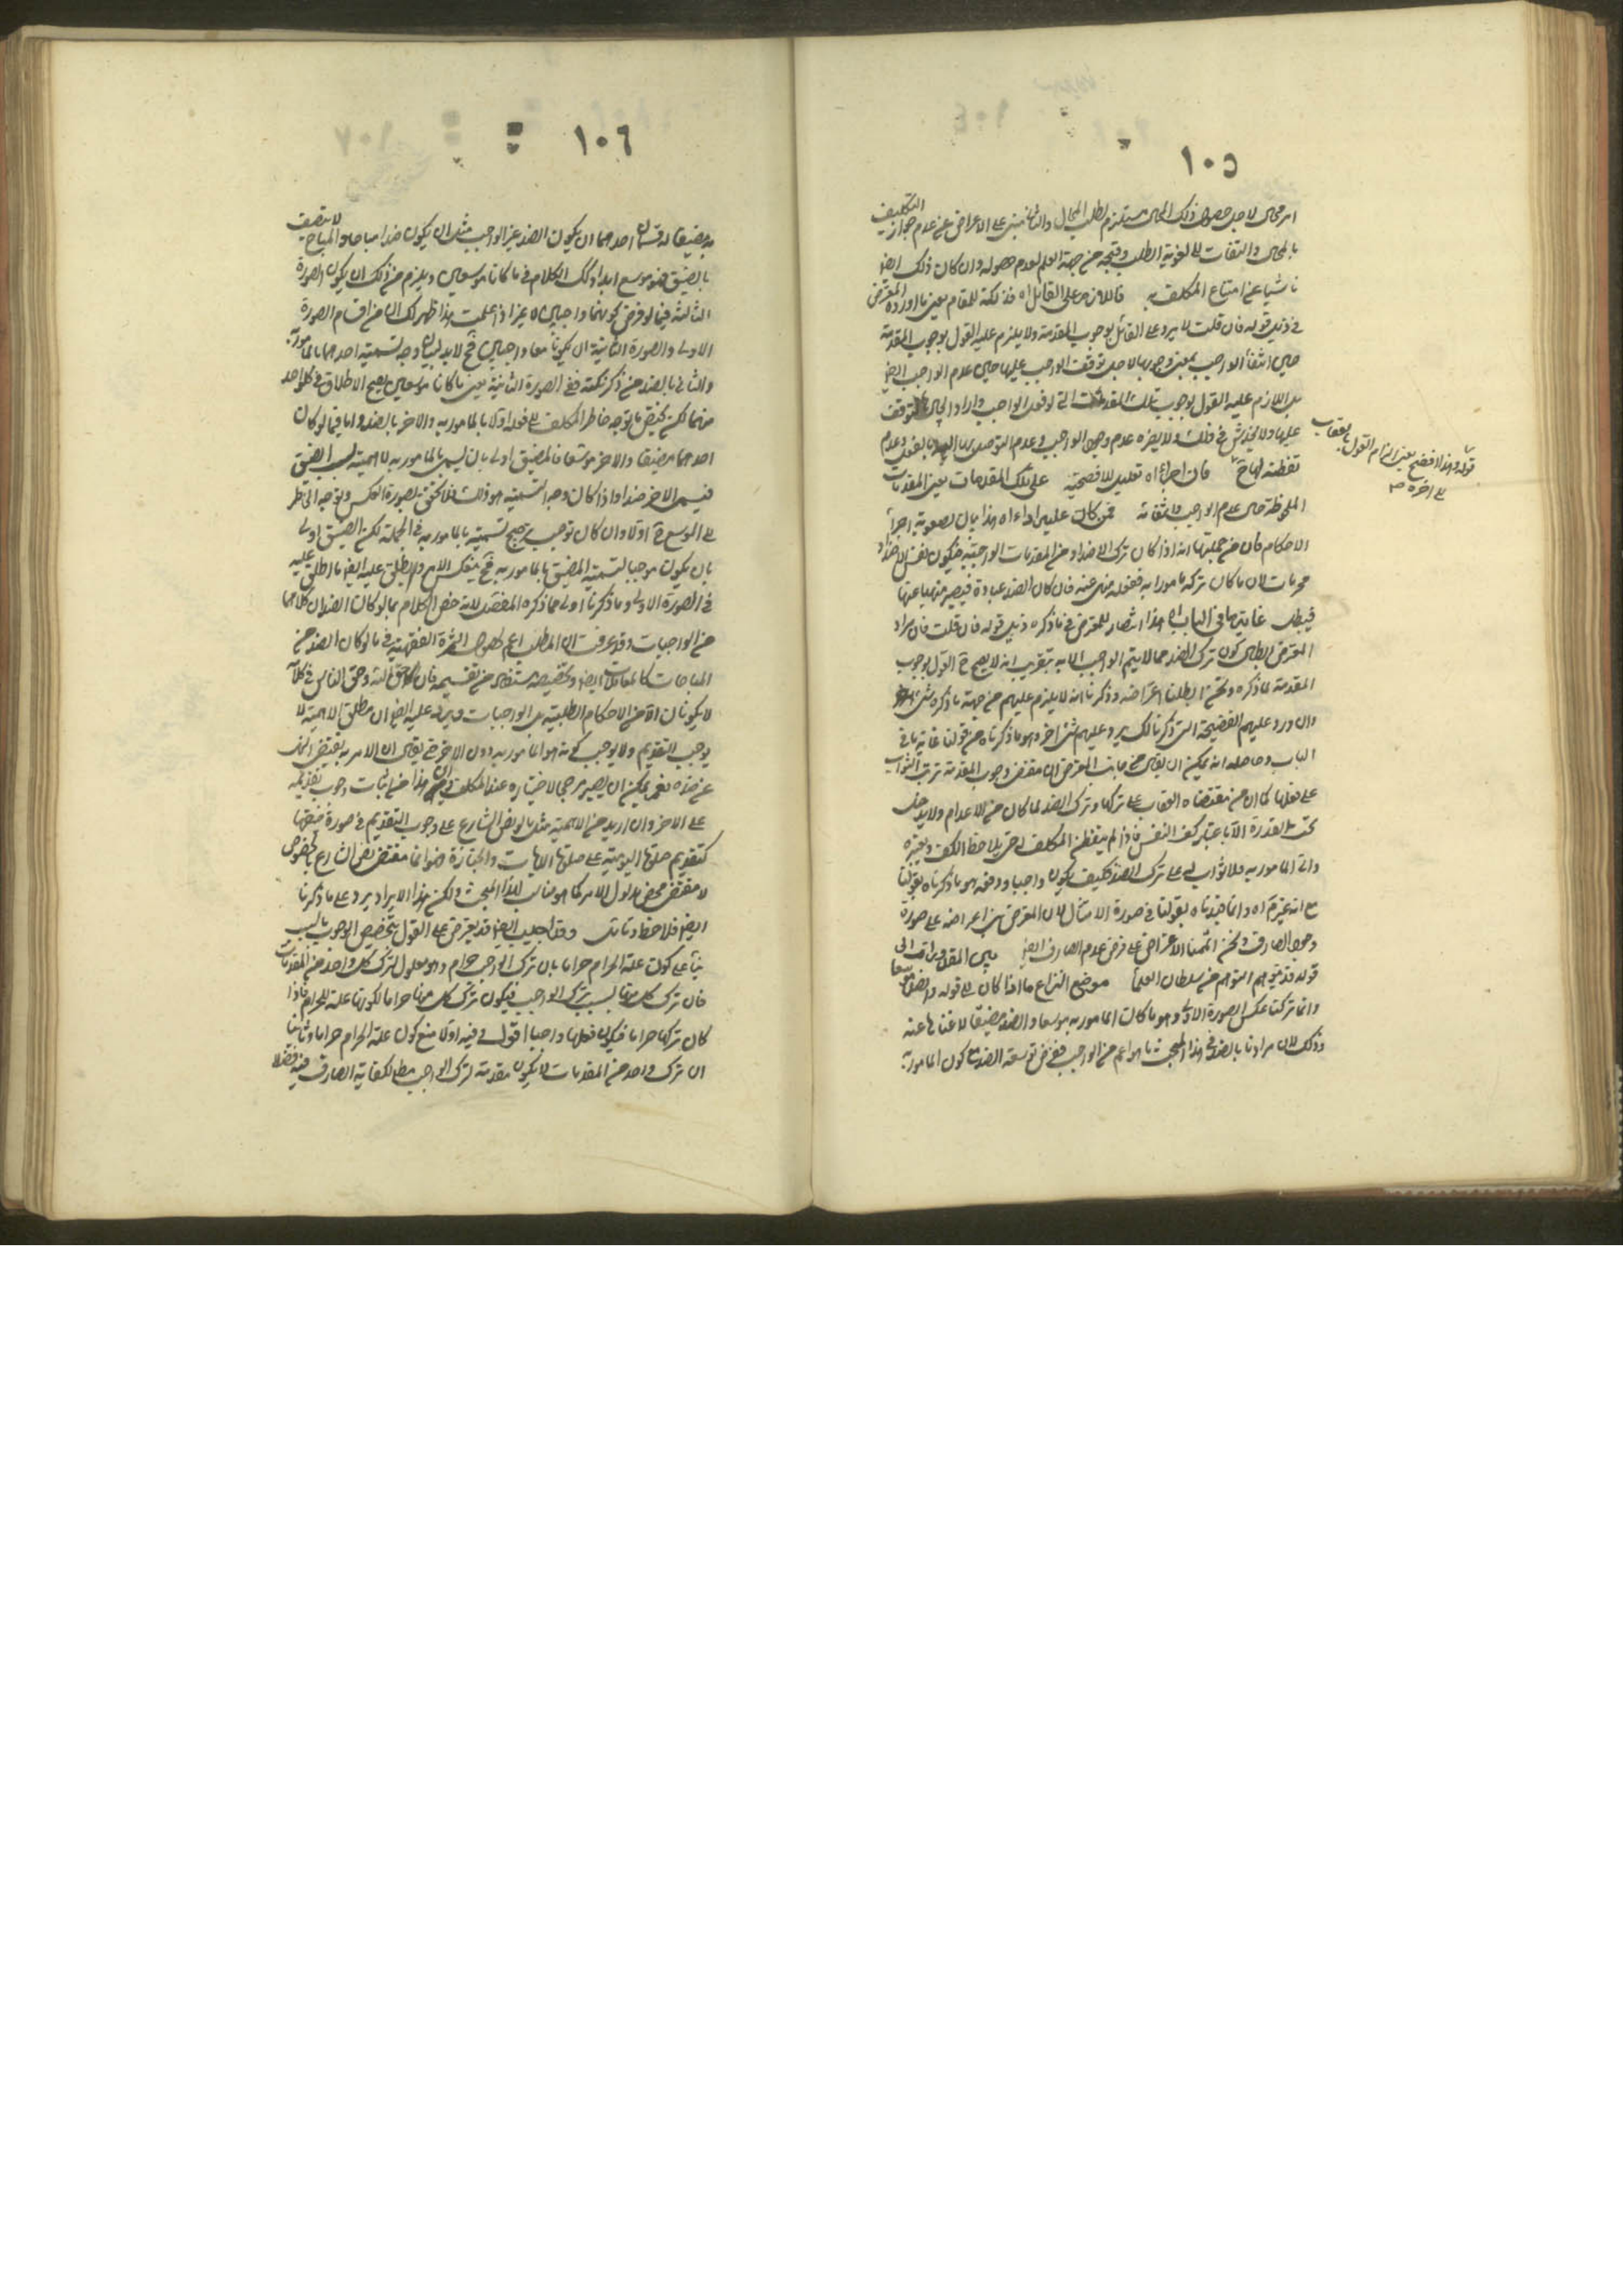 ١٠٥
امر محال لاجل حصول ذلك المحال مستلزم لطلب المحال والثانى مبنى على الاعراض عن عدم جواز التكليف
بالمحال والتفات الى لغوية الطلب وقبحه من جهة العلم بعدم حصوله وان كان ذلك ايضا
ناشيا عن امتناع المكلف به فاللازم على القائل اه فذلكة للمقام يعنى ما اورده المعترض
فى ذيل قوله فان قلت لا يرد على القائل بوجوب المقدمة ولا يلزم عليه القول بوجوب المقدمة
حال انتفاء الواجب بمعنى وجوبها لاجل توقف الواجب عليها حال عدم الواجب ايضا
بل اللازم عليه القول بوجوب تلك المقدمات التى لو فعل الواجب واراد لتوقف
عليها ولا يخدش فى ذلك ولا يضره عدم وجود الواجب وعدم التوصل بها اليه بالفعل وعدم
تفطنه لها ح فان اجراء اه تعليل للافضحية على تلك المقدمات يعنى المقدمات
الملحوظة حال عدم الواجب فمن كان عليه اداء اه هذا بيان لصعوبة اجراء
الاحكام فان من جملتها انه اذا كان ترك الاضداد من المقدمات الواجبة فيكون نفس الاضداد
محرمات لان ما كان تركه مامورا به ففعله منهى عنه فان كان الضد عبادة فيصير منهيا عنها
فيبطل غاية ما فى الباب اه هذا انتصار للمعترض فى ما ذكره ذيل قوله فان قلت فان مراد
المعترض ابطال كون ترك الضد مما لا يتم الواجب الا به بتقريب انه لا يصح ح القول بوجوب
المقدمة لما ذكره ونحن ابطلنا اعتراضه وذكرنا انه لا يلزم عليهم من جهة ما ذكره شئ
وان ورد عليهم الفضيحة التى ذكرنا لك يرد عليهم شئ اخر وهو ما ذكرناه من قولنا غاية ما فى
الباب وحاصله انه يمكن ان يقال من جانب المعترض ان مقتضى وجوب المقدمة ترتب الثواب
على فعلها كما ان من مقتضاه العقاب على تركها وترك الضد لما كان من الاعدام ولا يدخل
تحت القدرة الا باعتبار كف النفس فاذا لم يتفطن المكلف له حتى يلاحظ الكف ويعتبره
واتى المامور به فلا ثواب له على ترك الضد فكيف يكون واجبا ودفعه هو ما ذكرناه بقولنا
مع انه غير تم اه وانما قيدناه بقولنا فى صورة الامتثال لان المعترض بنى اعراضه على صورة
وجود الصارف ونحن اتممنا الاعتراض على فرض عدم الصارف ايضا
قوله قد يتوهم المتوهم هو سلطان العلماء موضع النزاع ما اذا كان الى قوله والضد موسعا
وانما تركنا عكس الصورة الاولى وهو ما كان المامور به موسعا والضد مضيقا لاغنائها عنه
وذلك لان مرادنا بالضد فى هذا المبحث ما هو اعم من الواجب ففى فرض توسعة الضد مع كون المامور به
قوله وهذا افضح يعنى التزام القول بالعقاب
الى اخره م
١٠٦
به مضيقا له قسمان احدهما ان يكون الضد غير الواجب مثل ان يكون ضدا مباحا والمباح لا يتصف
بالضيق فهو موسع ابدا وكك الكلام فى ما كانا موسعين ويلزم من ذلك ان يكون الصورة
الثالثة فيما لو فرض كونهما واجبين لا غير اذا علمت هذا ظهر لك ان من اقسام الصورة
الاولى والصورة الثانية ان يكونا معا واجبين فح لا بد لبيان وجه تسمية احدهما بالمامور به
والثانى بالضد من ذكر نكتة ففى الصورة الثانية يعنى ما كانا موسعين يصح الاطلاق فى كل واحد
منهما لكن يخص ما يتوجه خاطر المكلف الى فعله اولا بالمامور به والاخر بالضد واما فيما لو كان
احدهما مضيقا والاخر موسعا فالمضيق اولى بان يسمى بالمامور به لاهميته بسبب الضيق
فيسمى الاخر ضدا واذا كان وجه التسمية هو ذلك فلا يتحقق لصورة العكس وتوجه الخاطر
الى الموسع ح اولا وان كان يوجب ترجيح تسميته بالمامور به فى الجملة لكن الضيق اولى
بان يكون موجبا لتسمية المضيق بالمامور به فح ينعكس الامر ويطلق عليه ايضا ما اطلق عليه
فى الصورة الاولى وما ذكرنا اولى مما ذكره المفصل لانه خص الكلام بما لو كان الضدان كلاهما
من الواجبات وقد عرفت ان المطلب اعم لحصول الثمرة الفقهية فى ما لو كان الضد من
المباحات كالمعاملات ايضا وتخصيصه مستفاد من تقسيمه فان حق الله وحق الناس فى كلامه
لا يكونان الا من الاحكام الطلبية بل الواجبات ويرد عليه ايضا ان مطلق الاهمية لا
يوجب التقديم ولا يوجب كونه هو المامور به دون الاخر حتى يقال ان الامر به يقتضى النهى
عن ضده نعم يمكن ان يصير مرجحا لاختياره عند المكلف واين هذا من اثبات وجوب تقديمه
على الاخر وان اريد من الاهمية مثل ما لو نص الشارع على وجوب التقديم فى صورة ضيقهما
كتقديم صلوة اليومية على صلوة الايات والجنازة فهو انما مقتضى نص الشارع بالخصوص
لا مقتضى محض مدلول الامر كما هو مناسب لهذا المبحث ولكن هذا الايراد يرد على ما ذكرنا
ايضا فلاحظ وتامل وقد اجيب ايضا قد يعترض على القول بتخصيص الوجوب بالسبب
بناء على كون علة الحرام حراما بان ترك الواجب حرام وهو معلول لترك كل واحد من المقدمات
فان ترك كل منها لسبب ترك الواجب فيكون ترك كل منها حراما لكونها علة للحرام فاذا
كان تركها حراما فيكون فعلها واجبا اقول فيه اولا منع كون علة الحرام حراما وثانيا
ان ترك واحد من المقدمات لا يكون مقدمة لترك الواجب مط لكفاية الصارف فيه فضلا